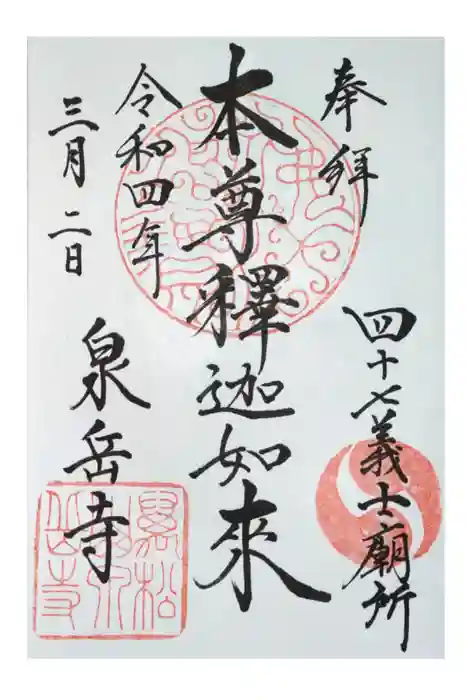 奉拝
四十七義士廟所
本尊釋迦如來
令和四年
三月二日
泉岳寺